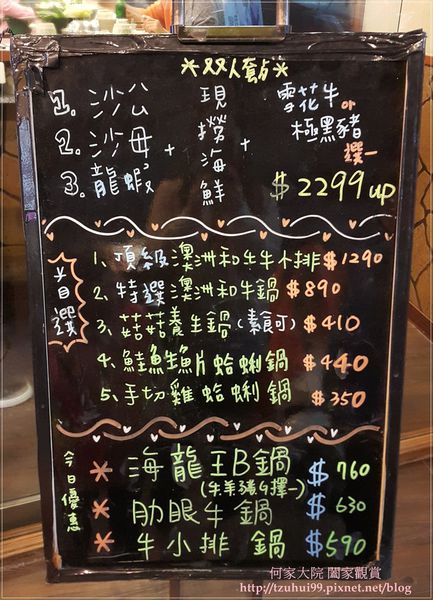 *双人套点*
1. 沙公
2. 沙母
3. 龍蝦
+
現撈海鮮
+
雪花牛 or
極黑豬
選一
$2299up
首選
1、頂級澳洲和牛牛小排 $1290
2、特選澳洲和牛鍋 $890
3、菇菇養生鍋(素食可) $410
4、鮭魚生魚片蛤蜊鍋 $440
5、手切雞蛤蜊鍋 $350
今日優惠
* 海龍王B鍋 $760
(牛羊豬鴨擇一)
* 肋眼牛鍋 $630
* 牛小排 鍋 $590
何家大院 闔家觀賞
http://tzuhui99.pixnet.net/blog